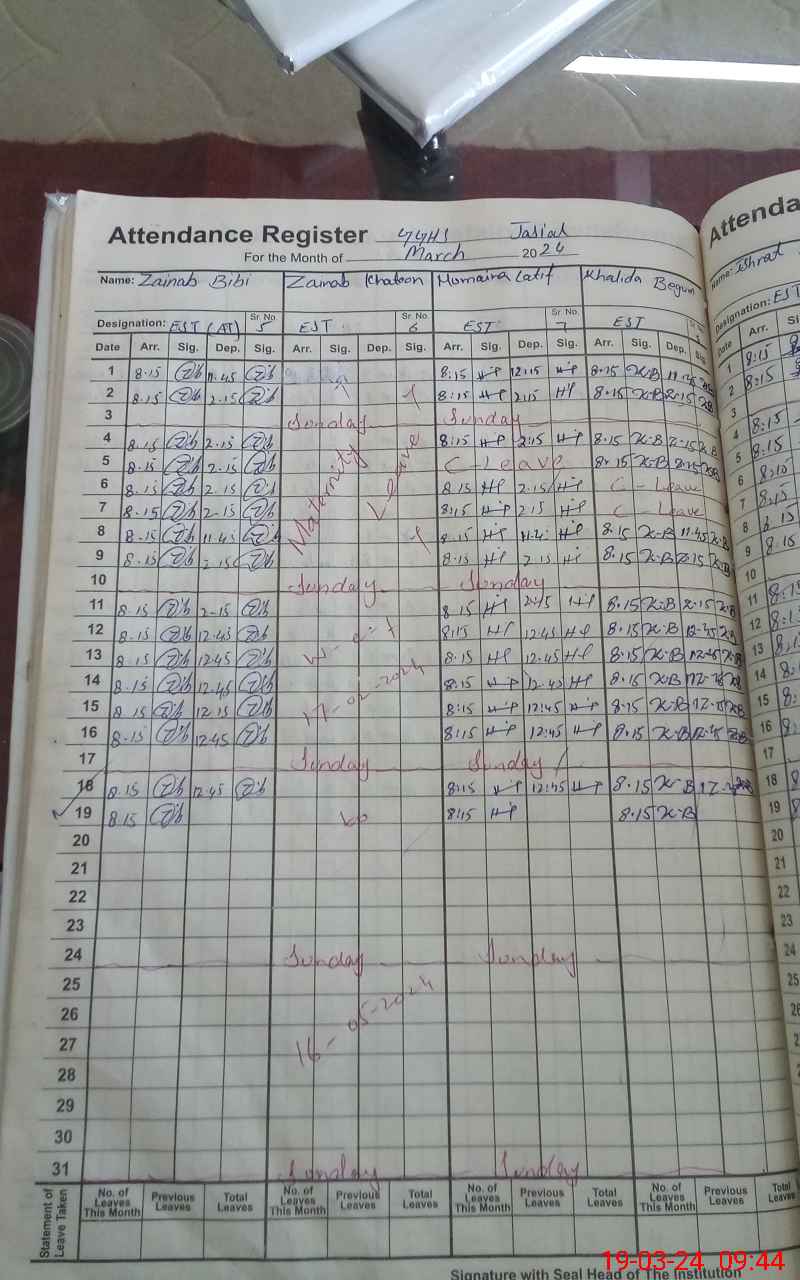 Attendance Register GGHS Jasial
For the Month of March 2024
Name: Zainab Bibi Zainab Khatoon Humaira Latif Khalida Begum
Designation: EST (AT) Sr. No. 5 EST Sr. No. 6 EST Sr. No. 7 EST
Date Arr. Sig. Dep. Sig. Arr. Sig. Dep. Sig. Arr. Sig. Dep. Sig. Arr. Sig. Dep. Sig.
1 8.15 11.45 8:15 12:15 8.15 K.B 11.45
2 8.15 2.15 8:15 2:15 8.15 K.B 2.15
3 Sunday Sunday
4 8.15 2.15 8:15 2:15 8.15 K.B 2.15 K.B
5 8.15 2.15 C-Leave 8.15 K.B 2.15
6 8.15 2.15 8.15 2.15 C-Leave
7 8.15 2.15 8:15 2.15 C-Leave
Maternity Leave
8 8.15 11.45 8.15 11.45 8.15 K.B 11.45 K.B
9 8.15 2.15 8.15 2.15 8.15 K.B 2.15 K.B
10 Sunday Sunday
11 8.15 2.15 8.15 2:15 8.15 K.B 2.15 K.B
12 8.15 12.45 8:15 12.45 8.15 K.B 12.45 K.B
w.e.f
13 8.15 12.45 8.15 12.45 8.15 K.B 12.45 K.B
14 8.15 12.45 8.15 12.45 8.15 K.B 12.45
17-02-2024
15 8.15 12.15 8:15 12:45 8.15 K.B 12.15
16 8.15 12.45 8:15 12:45 8.15 K.B 12.45
17 Sunday Sunday
18 8.15 12.45 8:15 12:45 8.15 K.B
19 8.15 to 8:15 8.15 K.B
20
21
22
23
24 Sunday Sunday
25
26
16-05-2024
27
28
29
30
31 Sunday Sunday
Statement of Leave Taken
No. of Leaves This Month Previous Leaves Total Leaves No. of Leaves This Month Previous Leaves Total Leaves No. of Leaves This Month Previous Leaves Total Leaves No. of Leaves This Month Previous Leaves Total Leaves
Signature with Seal Head of The Institution
Attenda
Name: Ishrat
Designation: EST
Date Arr.
1 8:15
2 8:15
3
4 8:15
5 8:15
6 8:15
7 8:15
8 8.15
9 8.15
10
11 8:15
12
13
14
15
16
17
18
19
20
21
22
23
24
25
19-03-24 09:44